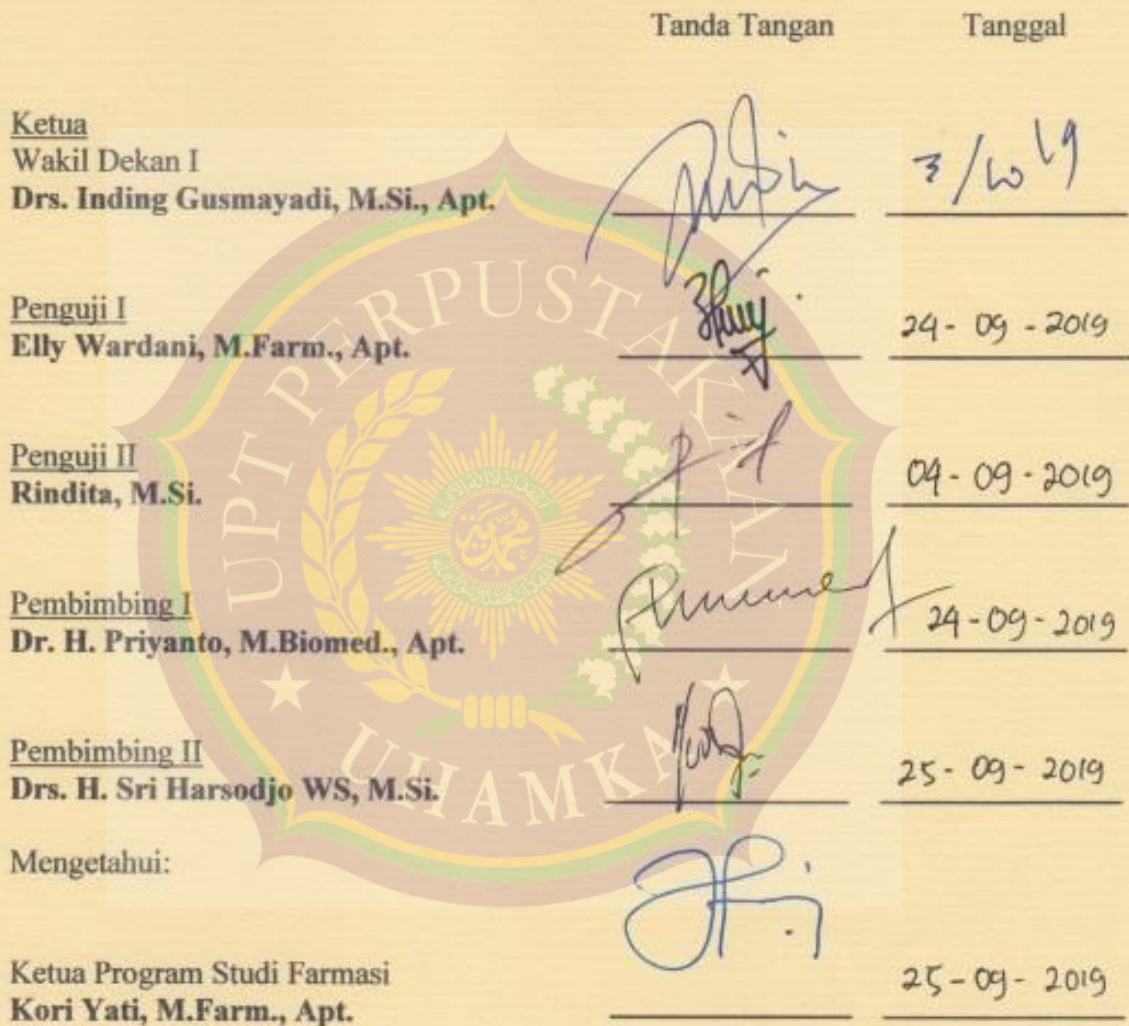 Tanda Tangan Tanggal
Ketua
Wakil Dekan I
Drs. Inding Gusmayadi, M.Si., Apt.
3/10 19
Penguji I
Elly Wardani, M.Farm., Apt.
24-09-2019
Penguji II
Rindita, M.Si.
09-09-2019
Pembimbing I
Dr. H. Priyanto, M.Biomed., Apt.
24-09-2019
Pembimbing II
Drs. H. Sri Harsodjo WS, M.Si.
25-09-2019
Mengetahui:
Ketua Program Studi Farmasi
Kori Yati, M.Farm., Apt.
25-09-2019
UPT PERPUSTAKAAN
UHAMKA